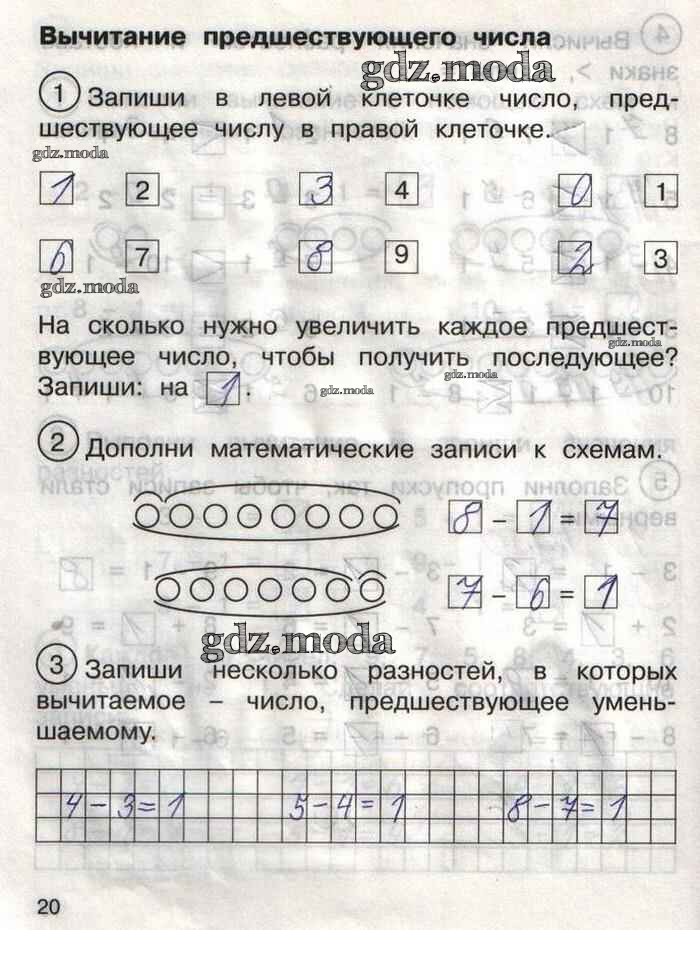 Вычитание предшествующего числа
gdz.moda
1 Запиши в левой клеточке число, пред-
шествующее числу в правой клеточке.
gdz.moda
1 2 3 4 0 1
6 7 8 9 2 3
gdz.moda
На сколько нужно увеличить каждое предшест-
gdz.moda
вующее число, чтобы получить последующее?
gdz.moda
Запиши: на 1.
gdz.moda
2 Дополни математические записи к схемам.
8 – 1 = 7
7 – 6 = 1
gdz.moda
3 Запиши несколько разностей, в которых
вычитаемое – число, предшествующее умень-
шаемому.
4 – 3 = 1 5 – 4 = 1 8 – 7 = 1
20